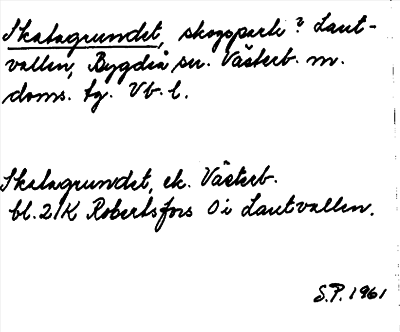 Skatagrundet, skogspark? Laut-
vallen, Bygdeå sn. Västerb. m.
doms. tg. Vb. l.
Skatagrundet, ek. Västerb.
bl. 21K Robertsfors Öi Lautvallen.
S.P. 1961